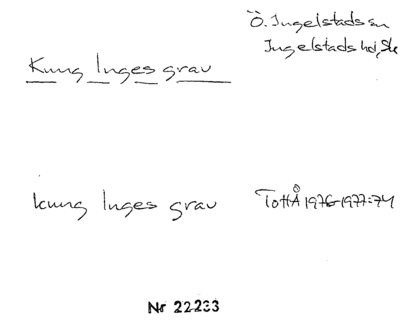 Ö. Ingelstads sn
Ingelstads hd, Sk
Kung Inges grav
Kung Inges grav
TottÅ 1976-1977:74
Nr 22233